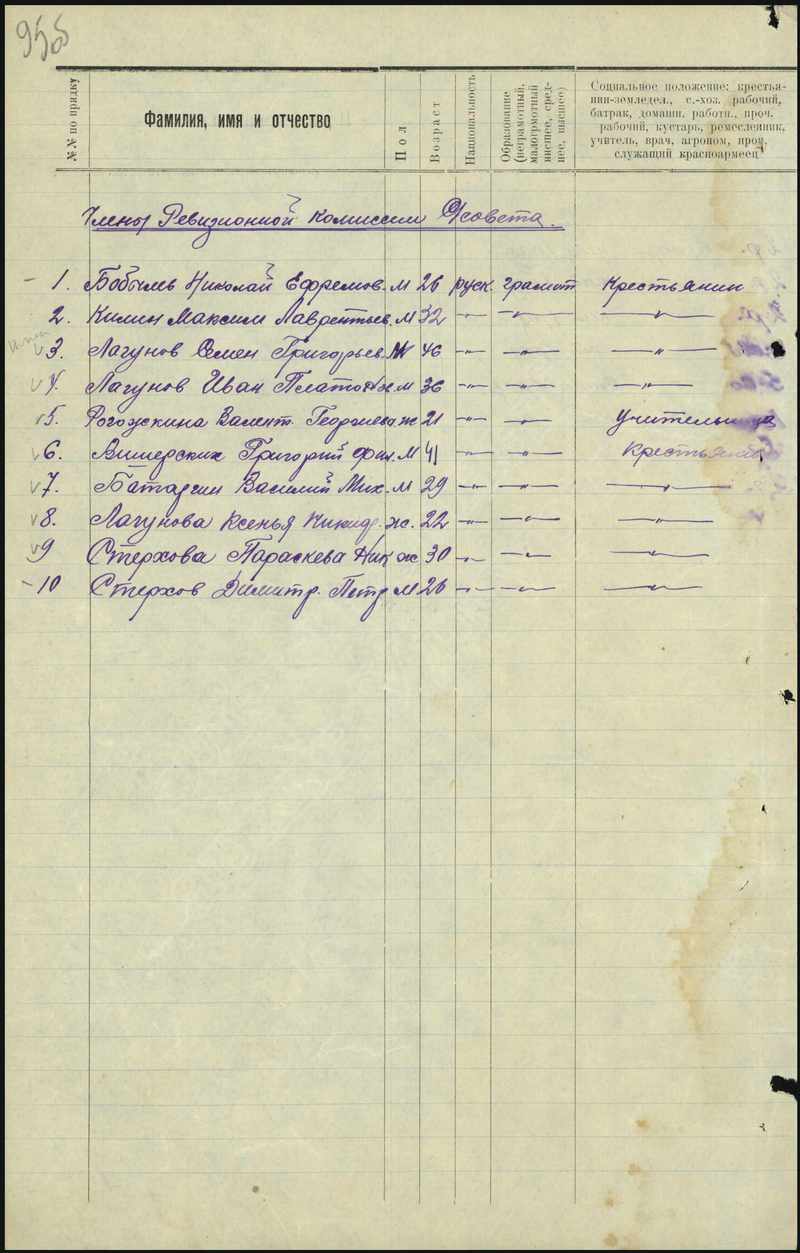 955
№№ по прядку
Фамилия, имя и отчество
Пол
Возраст
Национальность
Образование
(неграмотный,
малогрмотный
нисшее, сред-
нее, высшее)
Социальное положение: крестья-
нин-земледел., с.-хоз. рабочий,
батрак, домашн. работн., проч.
рабочий, кустарь, ремесленник,
учитель, врач, агроном, проч.
служащий красноармеец
Члены Ревизионной Комиссии С/совета.
1. Бобылев Николай Ефремов. м 26 руск. грамот Крестьянин
2. Килин Максим Лаврентьев. м 32 —"— —"— —"—
3. Лагунов Семен Григорьев. м 46 —"— —"— —"—
4. Лагунов Иван Платонов. м 36 —"— —"— —"—
5. Рогожкина Валент. Георгиева ж 21 —"— —"— Учительница
6. Вишерских Григорий Фил. м 41 —"— —"— Крестьянин
7. Батаргин Василий Мих. м 29 —"— —"— —"—
8. Лагунова Ксенья Никифр. ж. 22 —"— —"— —"—
9 Стерхова Параскева Ник ж 30 —"— —"— —"—
10 Стерхов Димитр. Петр м 26 —"— —"— —"—